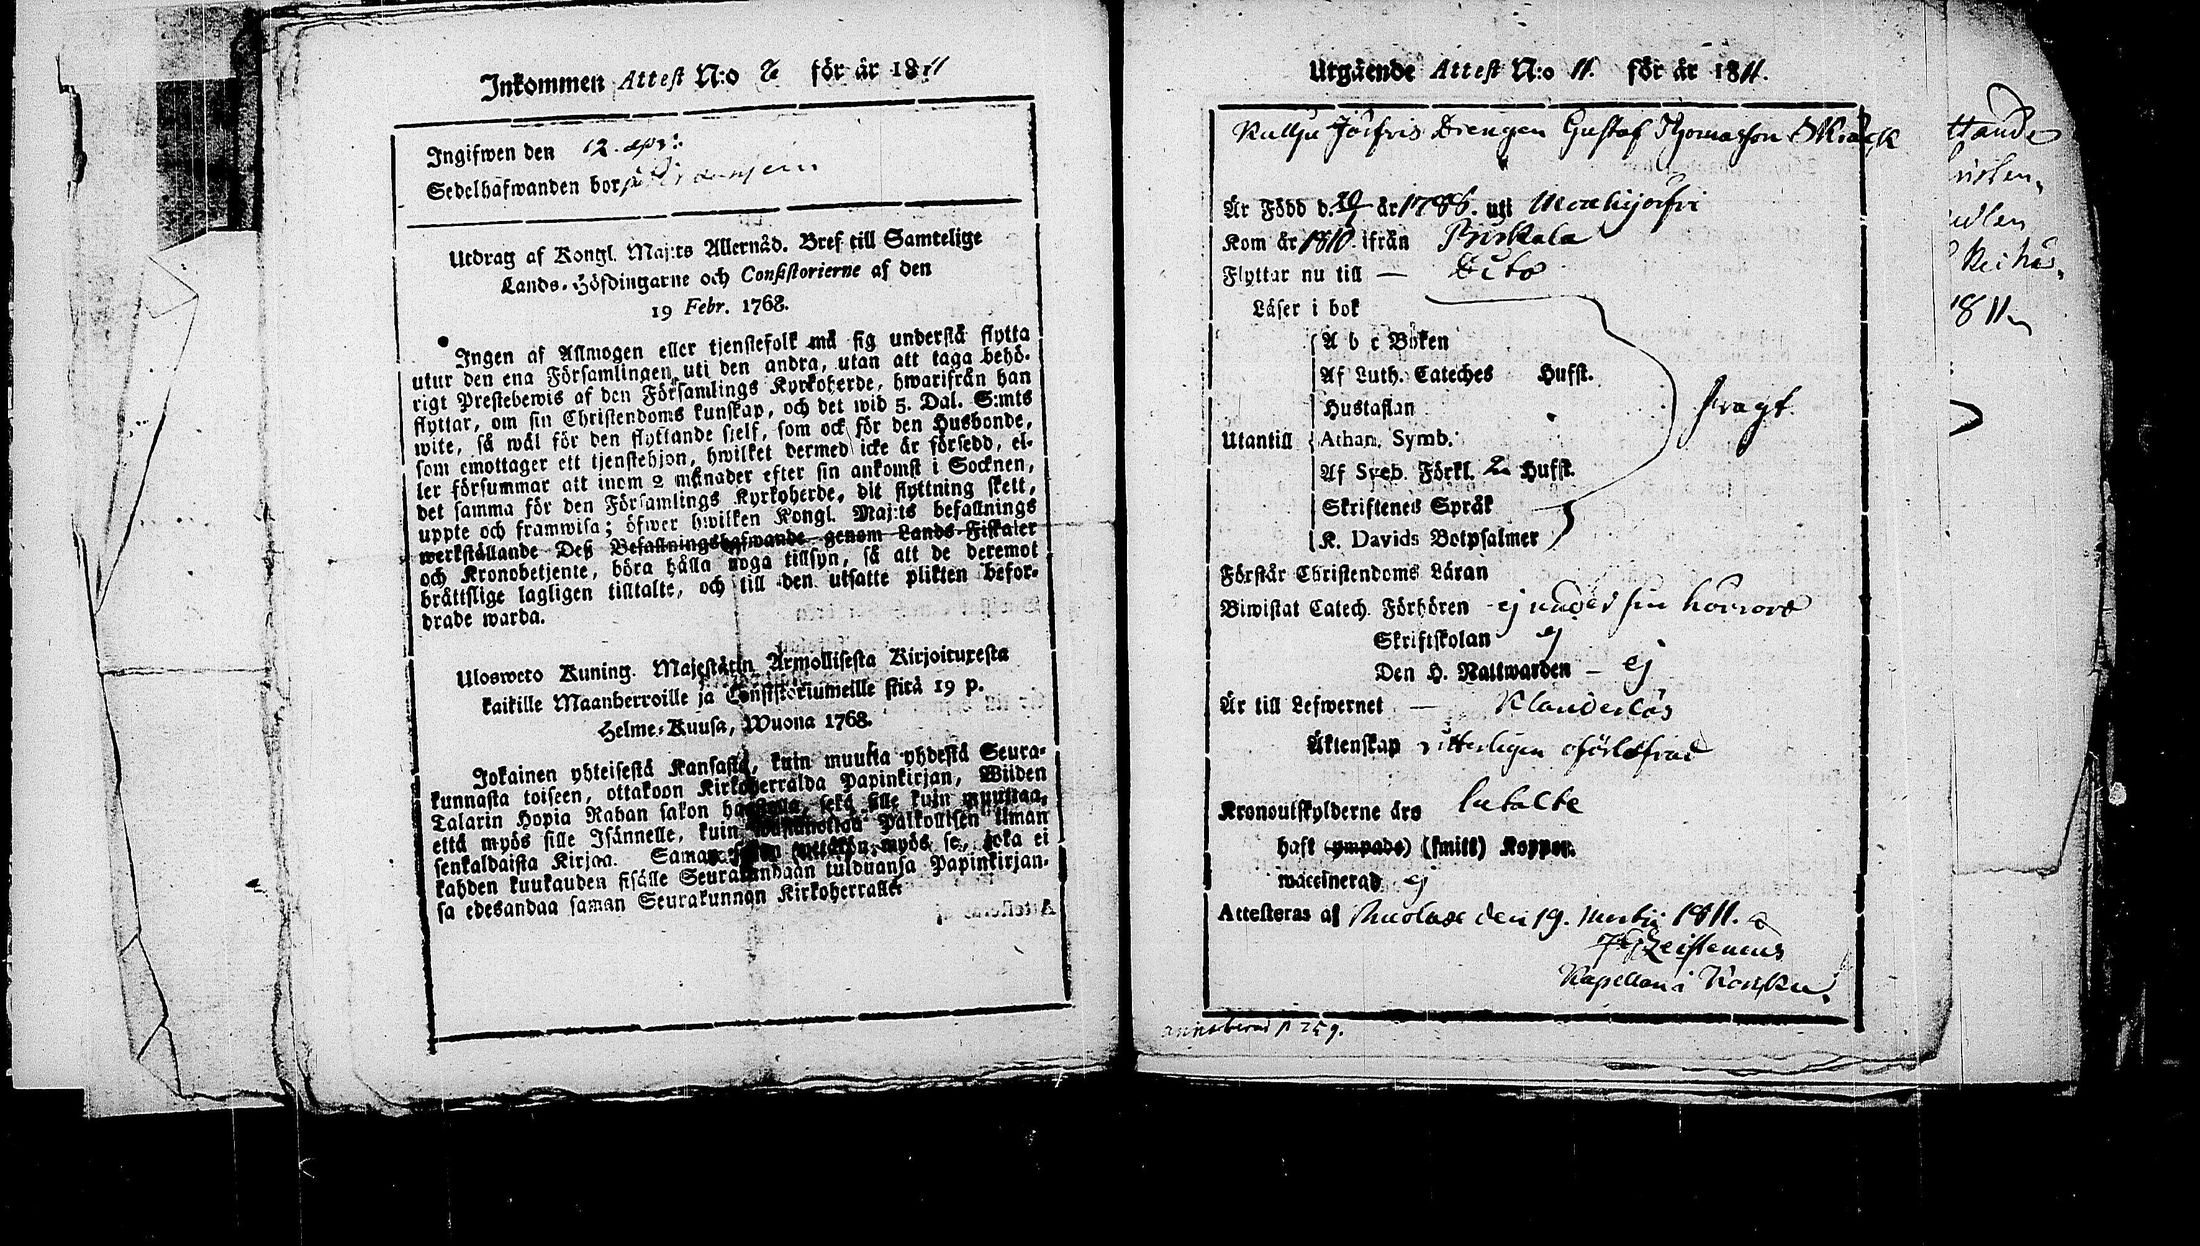 Inkommen Attest N:o för år 1811
Ingifwen den 12. apr:
Sedelhafwanden bor på
Utdrag af Kongl. Maj:ts Allernåd. Bref till Samtelige
Lands-Höfdingarne och Consistorierne af den
19 Febr. 1768.
Ingen af Allmogen eller tjenstefolk må sig understå flytta
utur den ena Församlingen uti den andra, utan att taga behö-
rigt Prestebewis af den Församlings Kyrkoherde, hwarifrån han
flyttar, om sin Christendoms kunskap, och det wid 5. Dal. S:mts
wite, så wäl för den flyttande sielf, som ock för den Husbonde,
som emottager ett tjenstehjon, hwilket dermed icke är försedd, el-
ler försummar att inom 2 månader efter sin ankomst i Socknen,
det samma för den Församlings Kyrkoherde, dit flyttning skett,
uppte och framwisa; öfwer hwilken Kongl. Maj:ts befallnings
werkställande Deß Befallningshafwande genom Lands-Fiskaler
och Kronobetjente, böra hålla noga tillsyn, så att de deremot
brättslige lagligen tilltalte, och till den utsatte plikten befor-
drade warda.
Ulosweto Kuning. Majestätin Armollisesta Kirjoituxesta
kaikille Maanherroille ja Consistoriumeille siitä 19 p.
Helme-Kuusa, Wuona 1768.
Jokainen yhteisestä Kansasta, kuin muutta yhdestä Seura-
kunnasta toiseen, ottakoon Kirkoherralda Papinkirjan, Wiiden
Talarin Hopia Rahan sakon haastolla, sekä sille kuin muuttaa,
että myös sille Isännelle, kuin Palkollisen ilman
senkaldaista Kirjaa. Saman myös se, joka ei
kahden kuukauden sisälle Seurakundaan tulduansa Papinkirjan-
sa edesandaa saman Seurakunnan Kirkoherralle.
Utgående Attest N:o 11. för år 1811.
Kullju Jåifvis Drengen Gustaf Thomasson Skräck
Är Född d. år 1786. uti
Kom år 1810. ifrån Birkala
Flyttar nu till — Dito
Läser i bok
A b c Boken
Af Luth. Cateches Hufst.
Hustaflan
svagt
Utantill Athan. Symb.
Af Sveb. Förkl. 2 Hufst.
Skriftenes Språk
K. Davids Botpsalmer
Förstår Christendoms Läran
Biwistat Catech. Förhören - ej under sin
Skriftskolan ej
Den H. Nattwarden — ej
Är till Lefwernet — Klanderlös
Äktenskap witterligen oförlofwad
Kronoutskylderne äro betalte
haft (ympade) (smitt) Koppor.
waccinerad ej
Attesteras af den 19. Martii 1811. a
Zeistenius
Kapellan i
annoterad p 259.
1811